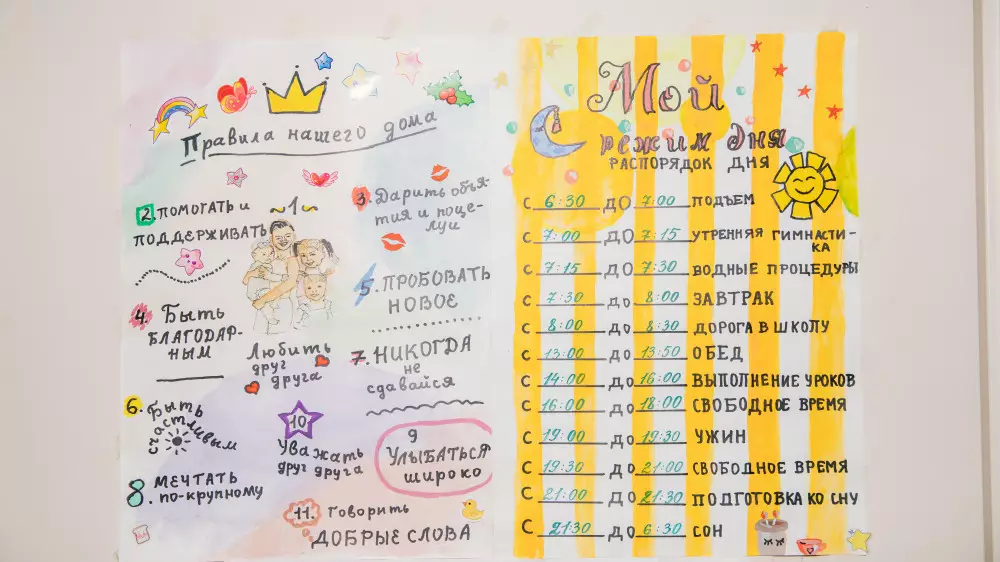 Правила нашего дома
~1~
2. ПОМОГАТЬ И
ПОДДЕРЖИВАТЬ
3. Дарить объя-
тия и поце-
луи
4. Быть
БЛАГОДАР-
НЫМ
5. ПРОБОВАТЬ
НОВОЕ
Любить
друг
друга
7. НИКОГДА
не
сдавайся
6. Быть
счастливым
10
Уважать
друг друга
9
Улыбаться
широко
8. МЕЧТАТЬ
по-крупному
11. Говорить
ДОБРЫЕ СЛОВА
Мой
режим дня
РАСПОРЯДОК ДНЯ
С 6:30 ДО 7:00 ПОДЪЕМ
С 7:00 ДО 7:15 УТРЕННЯЯ ГИМНАСТИ-
КА
С 7:15 ДО 7:30 ВОДНЫЕ ПРОЦЕДУРЫ
С 7:30 ДО 8:00 ЗАВТРАК
С 8:00 ДО 8:30 ДОРОГА В ШКОЛУ
С 13:00 ДО 13:50 ОБЕД
С 14:00 ДО 16:00 ВЫПОЛНЕНИЕ УРОКОВ
С 16:00 ДО 18:00 СВОБОДНОЕ ВРЕМЯ
С 19:00 ДО 19:30 УЖИН
С 19:30 ДО 21:00 СВОБОДНОЕ ВРЕМЯ
С 21:00 ДО 21:30 ПОДГОТОВКА КО СНУ
С 21:30 ДО 6:30 СОН